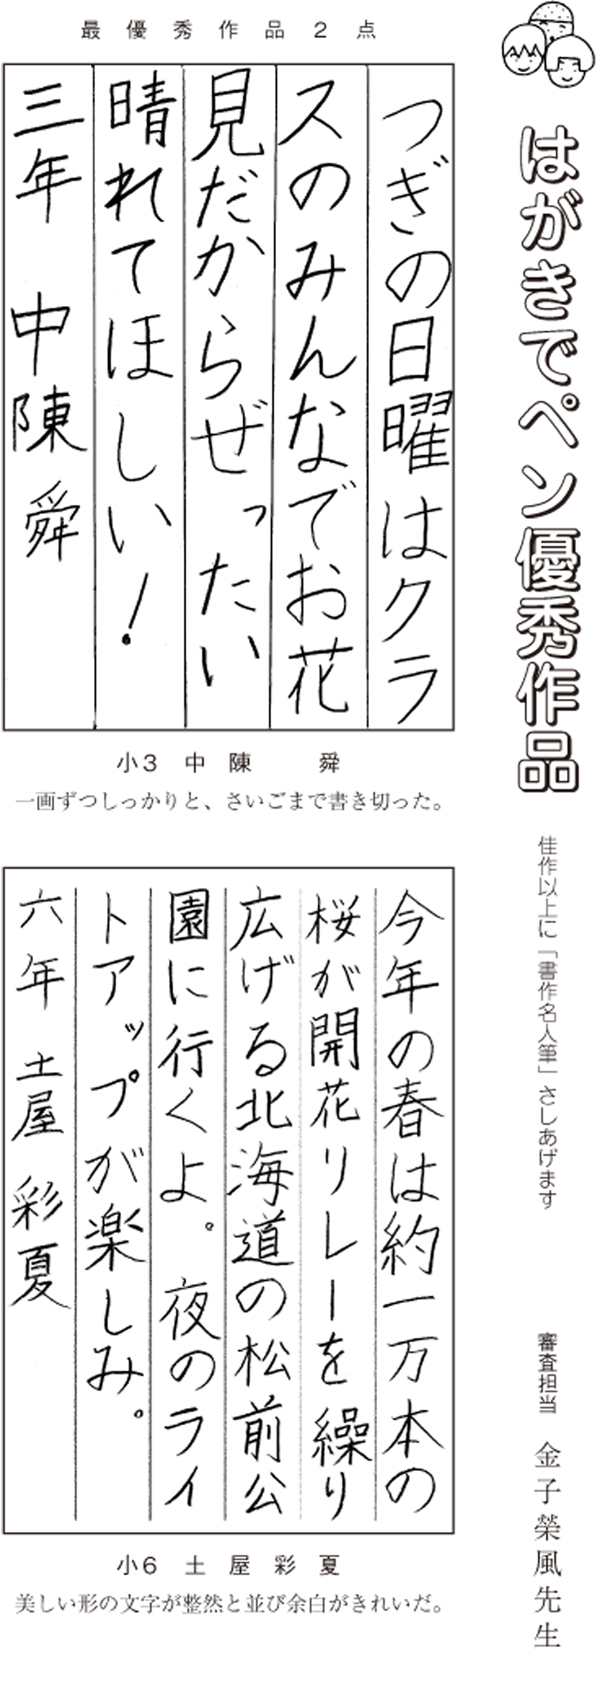 はがきでペン優秀作品
佳作以上に「書作名人筆」さしあげます
審査担当 金子榮風先生
最優秀作品2点
つぎの日曜はクラ
スのみんなでお花
見だからぜったい
晴れてほしい！
三年 中陳舜
小3 中陳 舜
一画ずつしっかりと、さいごまで書き切った。
今年の春は約一万本の
桜が開花リレーを繰り
広げる北海道の松前公
園に行くよ。夜のライ
トアップが楽しみ。
六年 土屋彩夏
小6 土屋彩夏
美しい形の文字が整然と並び余白がきれいだ。